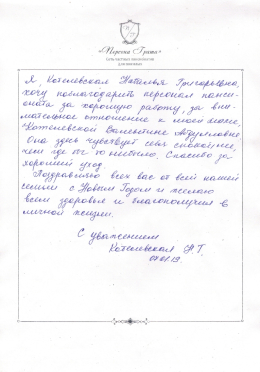 «Перечни Грант»
СЕТЬ ЧАСТНЫХ ПАНСИОНАТОВ
ДЛЯ ПОЖИЛЫХ
Я Котелевская Наталья Григорьевна,
хочу поблагодарить персонал панси-
оната за хорошую работу, за вни-
мательное отношение к моей маме,
Котелевской Валентине Абдулловне
Она здесь чувствует себя спокойнее,
чем где бы то ни было. Спасибо за
хороший уход.
Поздравляю всех вас от всей нашей
семьи с Новым Годом и желаю
всем здоровья и благополучия в
личной жизни.
С уважением
Котелевская Н.Г.
07.01.19.